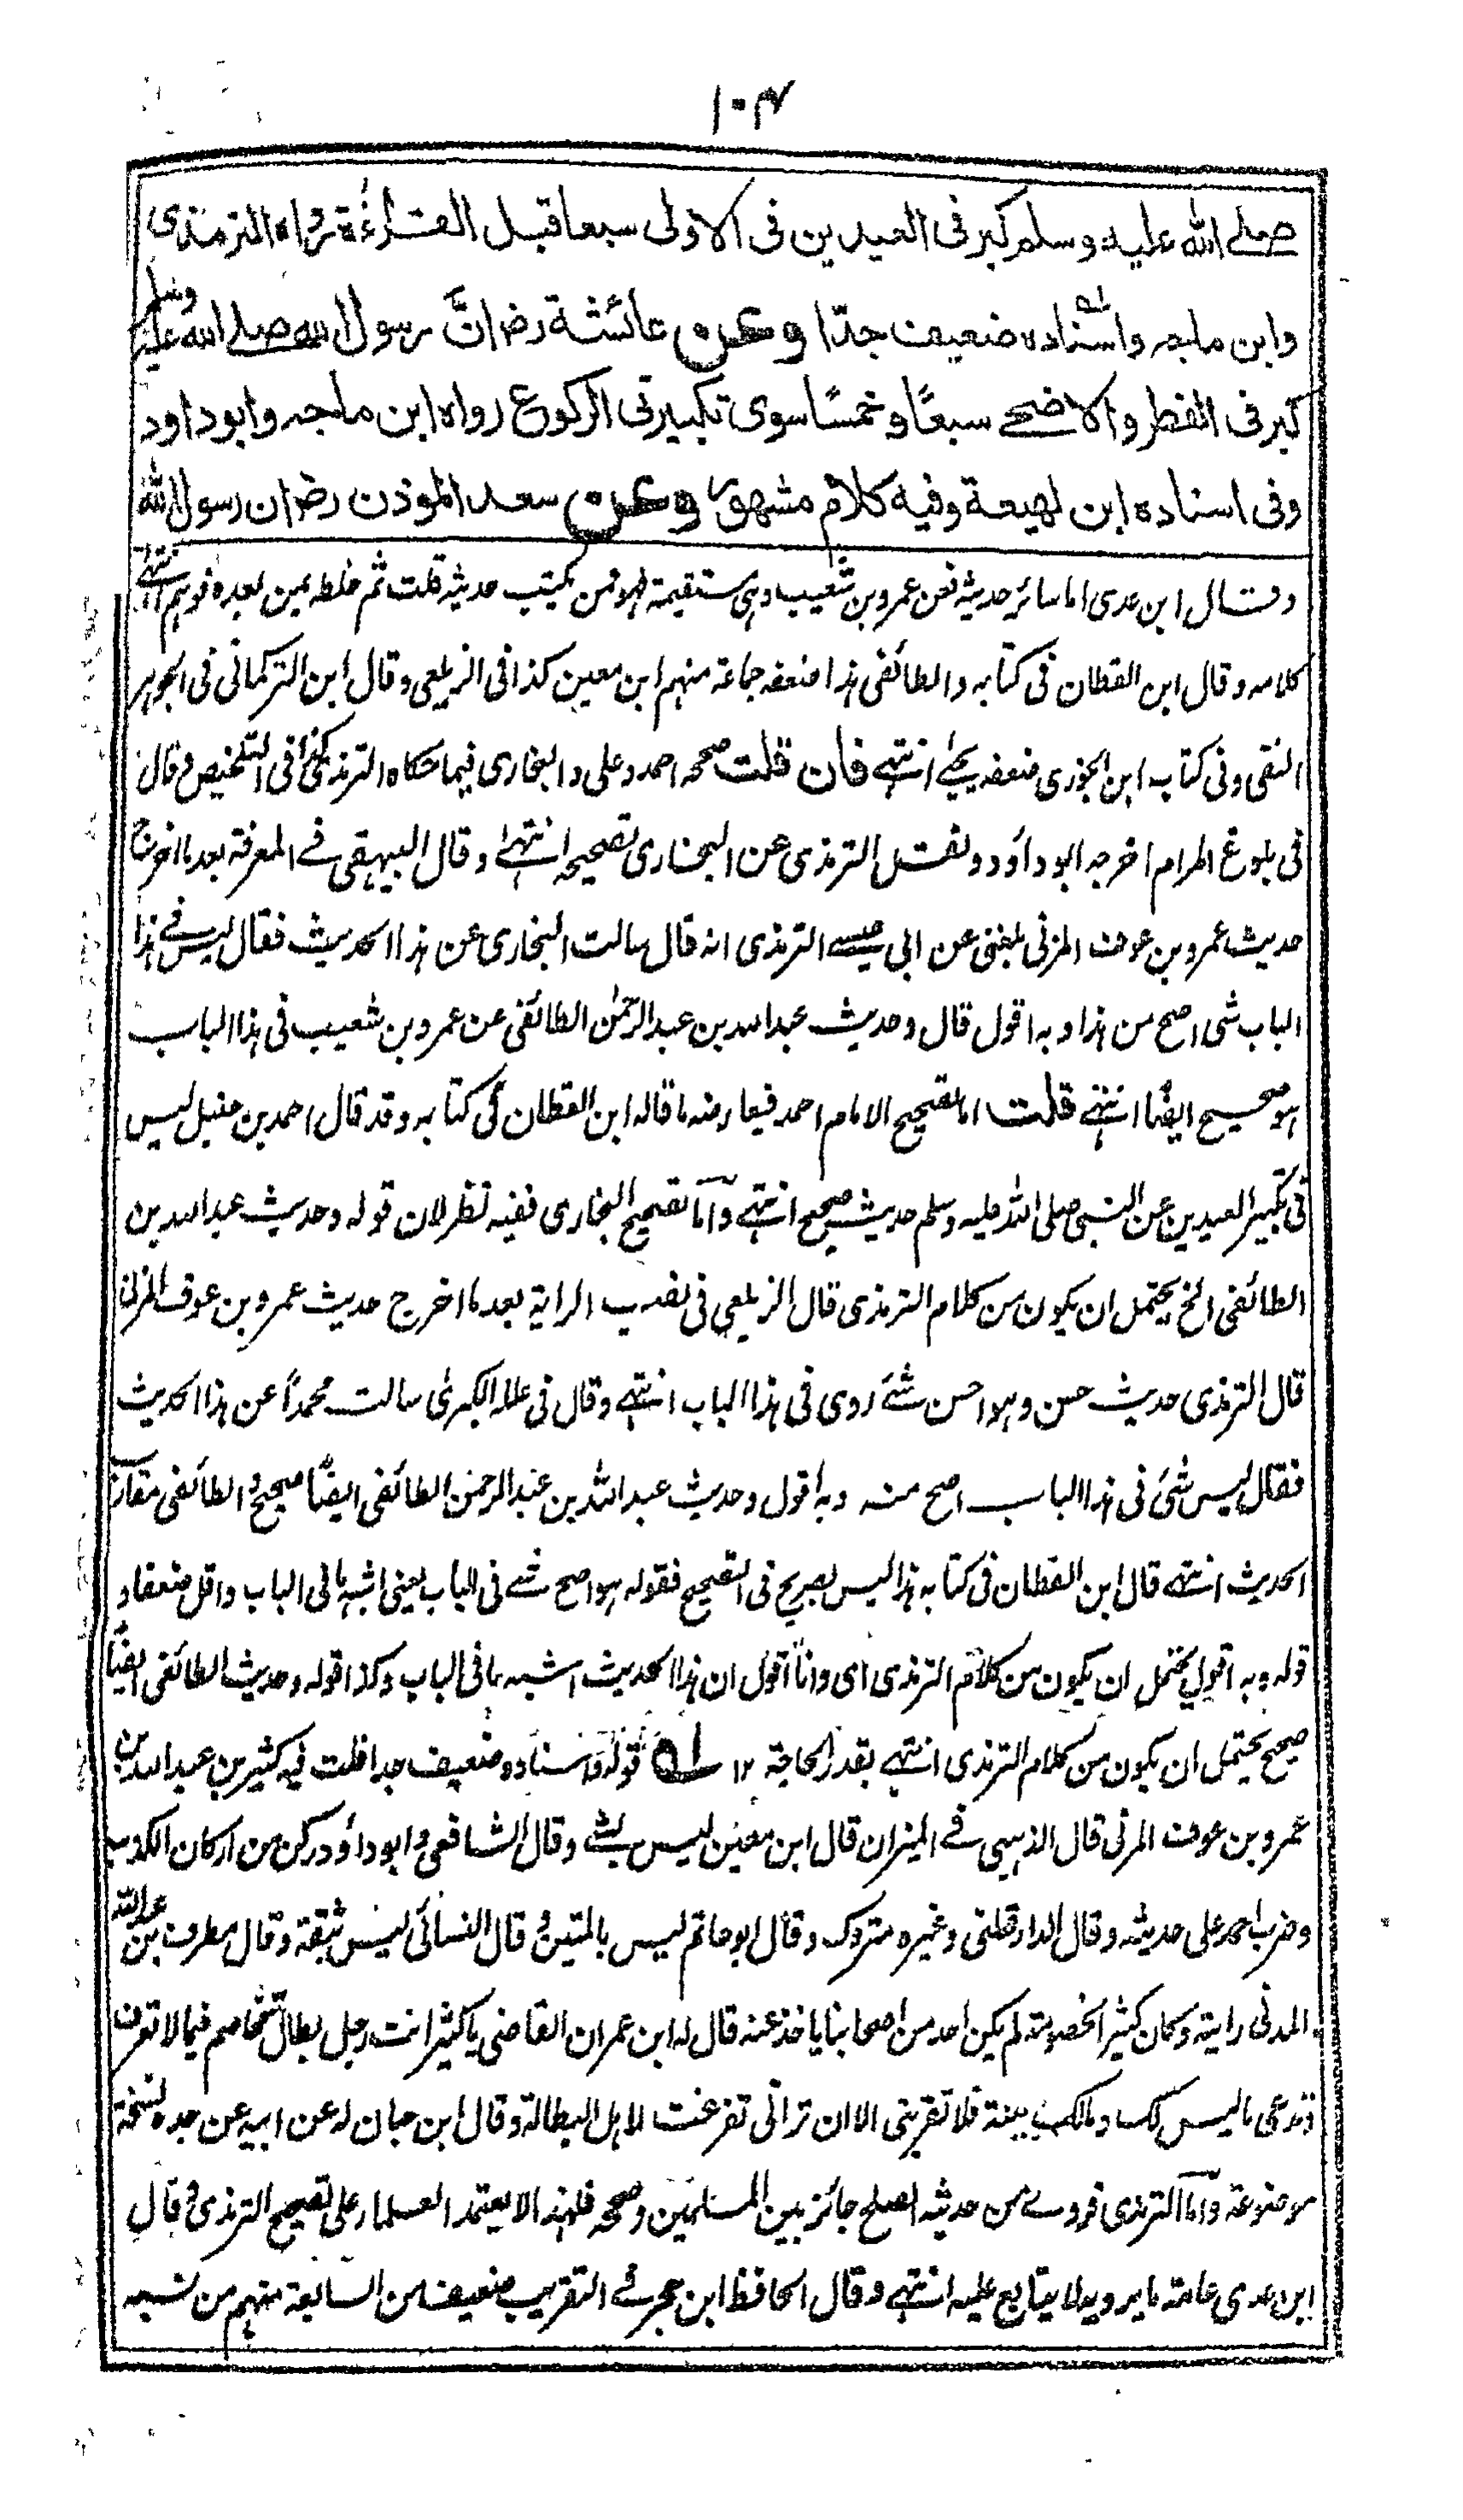 ۱۰۴
صلے الله علیه وسلم کبر فی العیدین فی الاولی سبعا قبل القراءة رواه الترمذی
وابن ماجه واسناده ضعیف جدّا وعن عائشة رضـ انّ رسول الله صلے الله علیه وسلم
کبر فی الفطر والاضحے سبعًا وخمسًا سوی تکبیرتی الرکوع رواه ابن ماجه وابوداود
وفی اسناده ابن لهیعة وفیه کلام مشهور وعن سعد المؤذن رضـ ان رسول الله
وقال ابن عدی اما سائر حدیثه فعن عمرو بن شعیب وہی مستقیمة فہو ممن یکتب حدیثه قلت ثم خلطه بمن بعده فوہم انتہے
کلامه وقال ابن القطان فی کتابه والطائفی ہذا ضعفه جماعة منہم ابن معین کذا فی الزیلعی وقال ابن الترکمانی فی الجوہر
النقی وفی کتاب ابن الجوزی ضعفه یحیٰے انتہے فان قلت صححه احمد وعلی والبخاری فیما حکاه الترمذی کذا فی التلخیص وقال
فی بلوغ المرام اخرجه ابوداؤد ونقل الترمذی عن البخاری تصحیحه انتہیٰ وقال البیہقی فے المعرفة بعد ما اخرج
حدیث عمرو بن عوف المزنی بلغنی عن ابی عیسے الترمذی انه قال سالت البخاری عن ہذا الحدیث فقال لیس فے ہذا
الباب شی اصح من ہذا وبه اقول قال وحدیث عبدالله بن عبدالرحمٰن الطائفی عن عمرو بن شعیب فی ہذا الباب
ہو صحیح ایضًا انتہے قلت اما تصحیح الامام احمد فیعارضه ما قاله ابن القطان فی کتابه وقد قال احمد بن حنبل لیس
فی تکبیر العیدین عن النبی صلی الله علیه وسلم حدیث صحیح انتہے وآما تصحیح البخاری ففیه نظر لان قوله وحدیث عبدالله بن
الطائفی الخ یحتمل ان یکون من کلام الترمذی قال الزیلعی فی نصب الرایة بعد ما اخرج حدیث عمرو بن عوف المزنی
قال الترمذی حدیث حسن وہو احسن شئے روی فی ہذا الباب انتہے وقال فی علله الکبریٰ سالت محمداً عن ہذا الحدیث
فقال لیس شئ فی ہذا الباب اصح منه وبه اقول وحدیث عبدالله بن عبدالرحمٰن الطائفی ایضًا صحیح والطائفی مقارب
الحدیث انتہے قال ابن القطان فی کتابه ہذا لیس بصریح فی التصحیح فقوله ہو اصح شے فی الباب یعنی اشبه ما فی الباب واقل ضعفا و
قوله وبه اقول یحتمل ان یکون من کلام الترمذی ای وانا اقول ان ہذا الحدیث اشبه ما فی الباب وکذا قوله وحدیث الطائفی ایضًا
صحیح یحتمل ان یکون من کلام الترمذی انتہے بقدر الحاجة ۱۲ قوله واسناده ضعیف جدا قلت فیه کثیر بن عبدالله بن
عمرو بن عوف المزنی قال الذہبی فے المیزان قال ابن معین لیس بشے وقال الشافعی وابوداؤد رکن من ارکان الکذب
وضرب احمد علی حدیثه وقال الدارقطنی وغیره متروک وقال ابوحاتم لیس بالمتین وقال النسائی لیس بثقة وقال مطرف بن عبدالله
المدنی رایته وکان کثیر الخصومة لم یکن احد من اصحابنا یاخذ عنه قال له ابن عمران القاضی یا کثیر انت رجل بطال تخاصم فیما لا تعرف
وتدعی ما لیس لک ومالک بینة فلا تقربنی الا ان ترانی تفرغت لاہل البطالة وقال ابن حبان له عن ابیه عن جده نسخة
موضوعة وآما الترمذی فروے من حدیثه الصلح جائز بین المسلمین وصححه فلہذا لا یعتمد العلماء علی تصحیح الترمذی وقال
ابن عدی عامة ما یرویه لا یتابع علیه انتہے وقال الحافظ ابن حجر فے التقریب ضعیف من السابعة منہم من نسبه